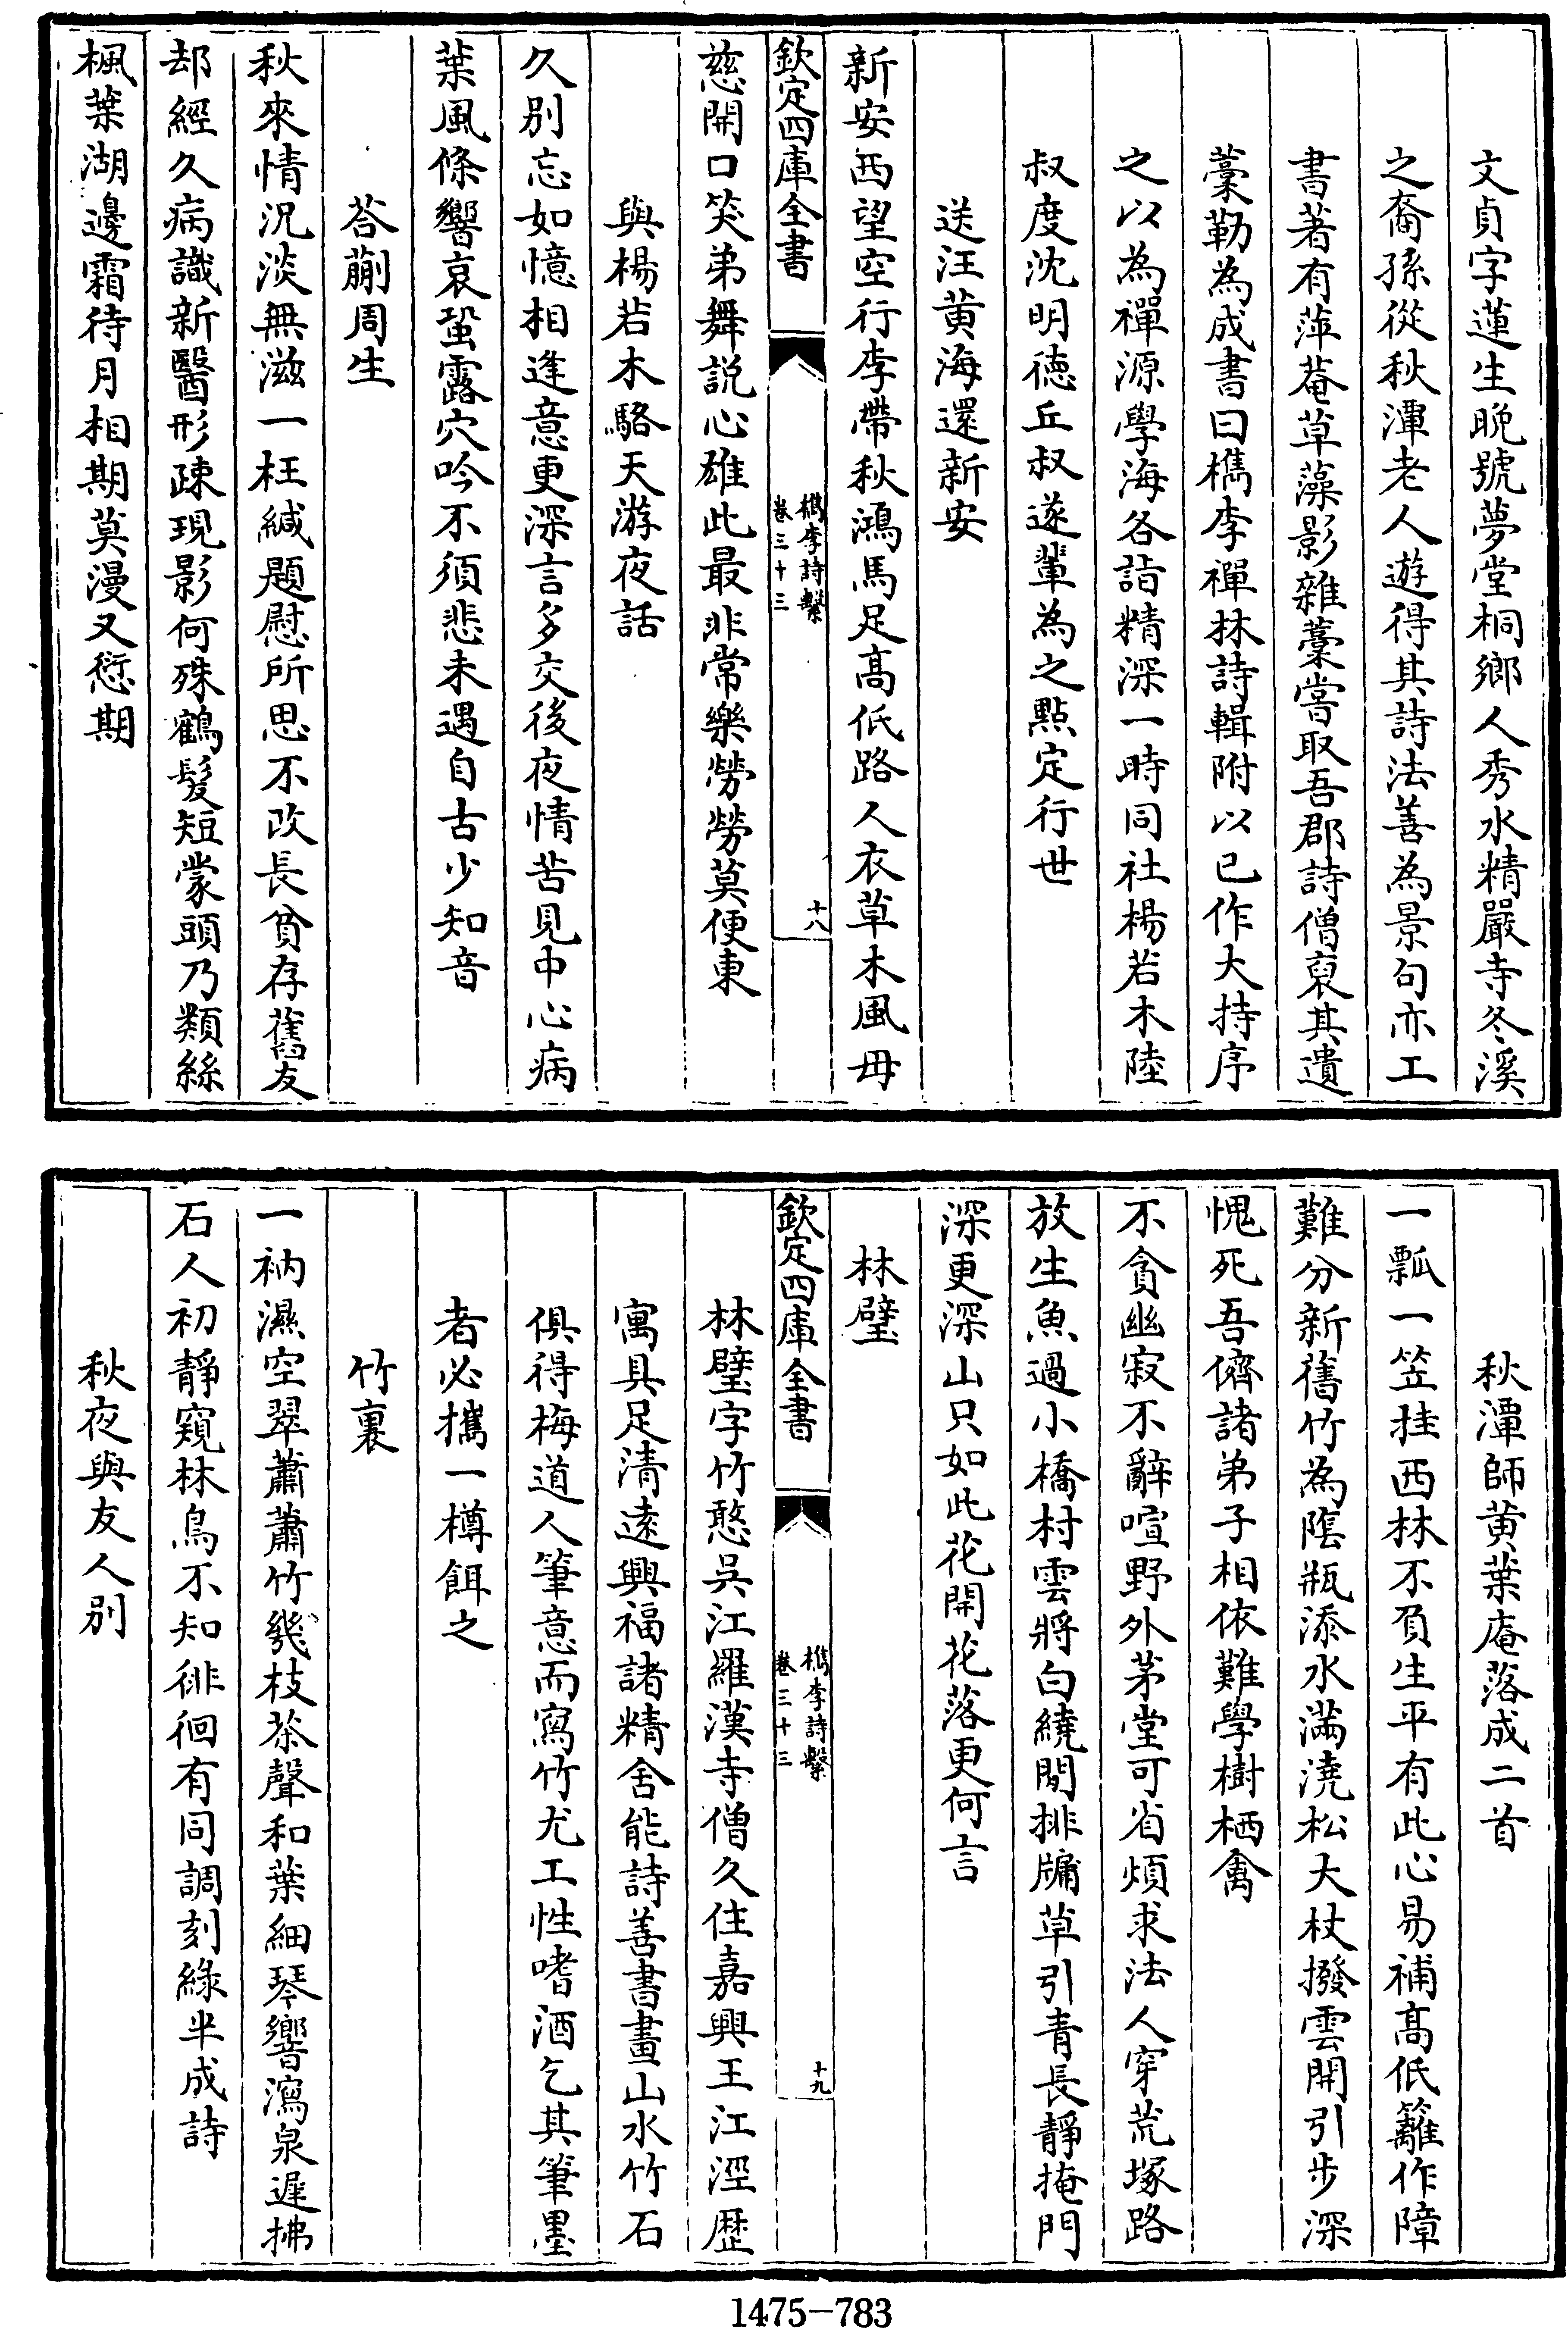 文貞字蓮生晚號夢堂桐鄉人秀水精嚴寺冬溪
之裔孫從秋潭老人遊得其詩法善為景句亦工
書著有萍菴草藻影雜藁嘗取吾郡詩僧裒其遺
藁勒為成書曰檇李禪林詩輯附以已作大持序
之以為禪源學海各詣精深一時同社楊若木陸
叔度沈明德丘叔遂輩為之點定行世
送汪黄海還新安
新安西望空行李帶秋鴻馬足髙低路人衣草木風毋
欽定四庫全書
檇李詩繫
卷三十三
十八
慈開口笑弟舞説心雄此最非常樂勞勞莫便東
與楊若木駱天游夜話
久别忘如憶相逢意更深言多交後夜情苦見中心病
葉風條響哀蛩露穴吟不須悲未遇自古少知音
荅蒯周生
秋來情況淡無滋一枉緘題慰所思不改長貧存舊友
却經久病識新醫形疎現影何殊鶴髮短蒙頭乃類絲
楓葉湖邊霜待月相期莫漫又愆期
秋潭師黄葉庵落成二首
一瓢一笠挂西林不負生平有此心易補髙低籬作障
難分新舊竹為隂瓶添水滿澆松大杖撥雲開引步深
愧死吾儕諸弟子相依難學樹栖禽
不貪幽寂不辭喧野外茅堂可省煩求法人穿荒塚路
放生魚過小橋村雲將白繞閒排牗草引青長靜掩門
深更深山只如此花開花落更何言
林璧
欽定四庫全書
檇李詩繫
卷三十三
十九
林璧字竹憨吳江羅漢寺僧久住嘉興王江涇歴
寓具足清遠興福諸精舍能詩善書畫山水竹石
俱得梅道人筆意而寫竹尤工性嗜酒乞其筆墨
者必攜一樽餌之
竹裏
一衲濕空翠蕭蕭竹幾枝茶聲和葉細琴響瀉泉遲拂
石人初靜窺林鳥不知徘徊有同調刻綠半成詩
秋夜與友人别
1475-783